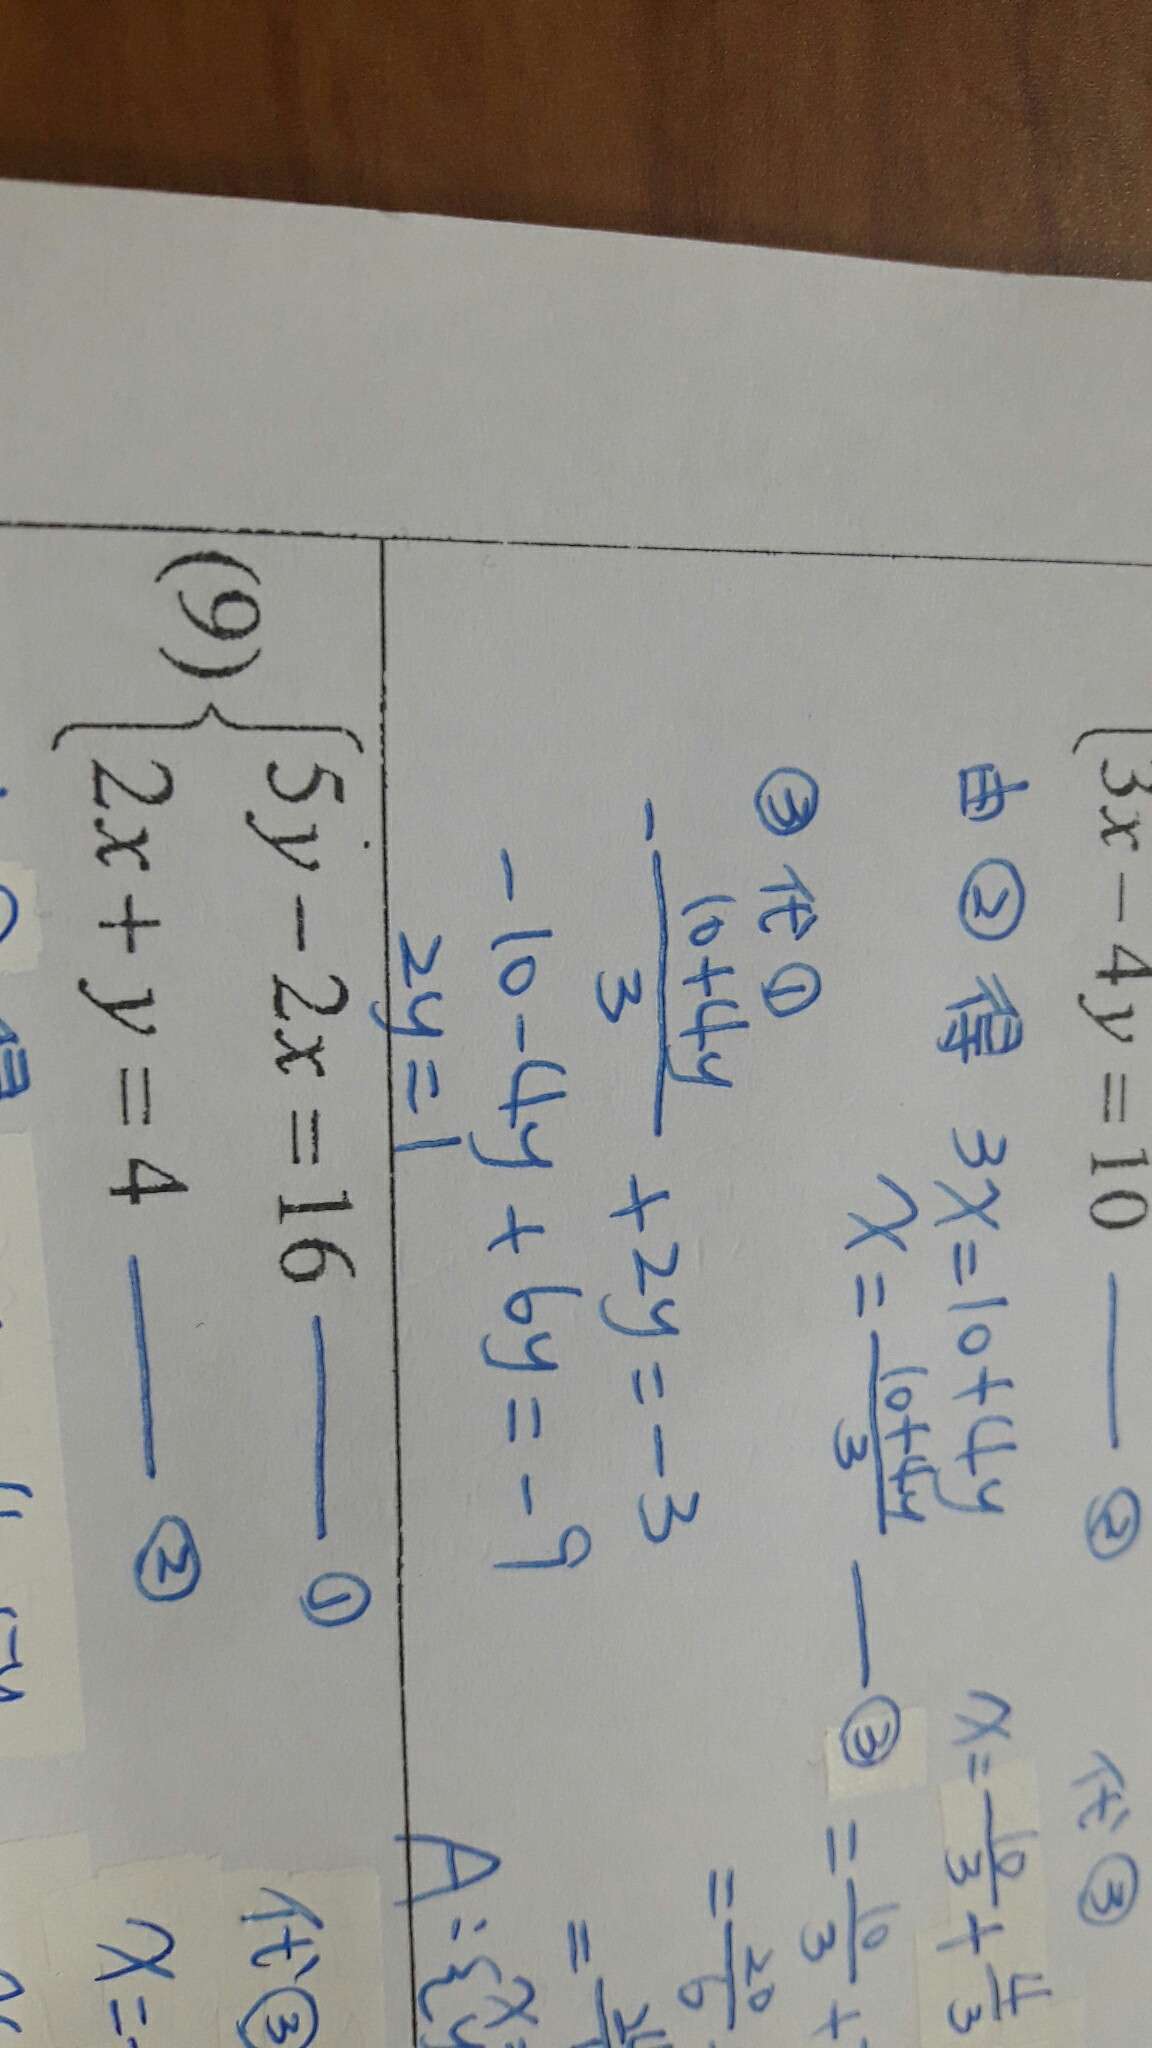 3x－4y＝10 —— ②
由②得 3x=10+4y
x=\frac{10+4y}{3} —— ③
③代①
-\frac{10+4y}{3}+2y=-3
-10-4y+6y=-9
2y=1
代③
x=\frac{10}{3}+\frac{4}{3}
=\frac{10}{3}+
=\frac{20}{6}
=
A:{x=
y
(9){5y－2x＝16 —— ①
2x＋y＝4 —— ②
代③
x=-